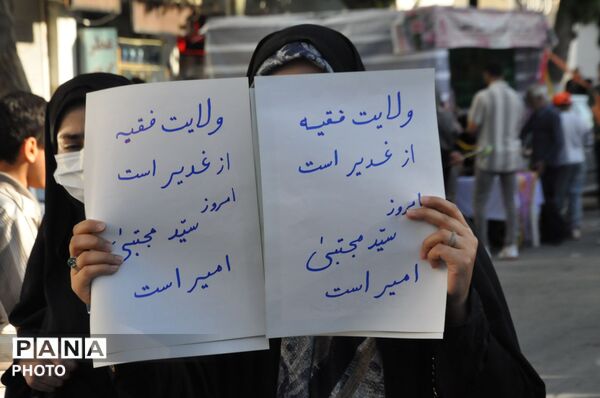 ولایت فقیه
از غدیر است
امروز
سیّد مجتبیٰ
امیر است
ولایت فقیه
از غدیر است
امروز
سیّد مجتبیٰ
امیر است
PANA
PHOTO